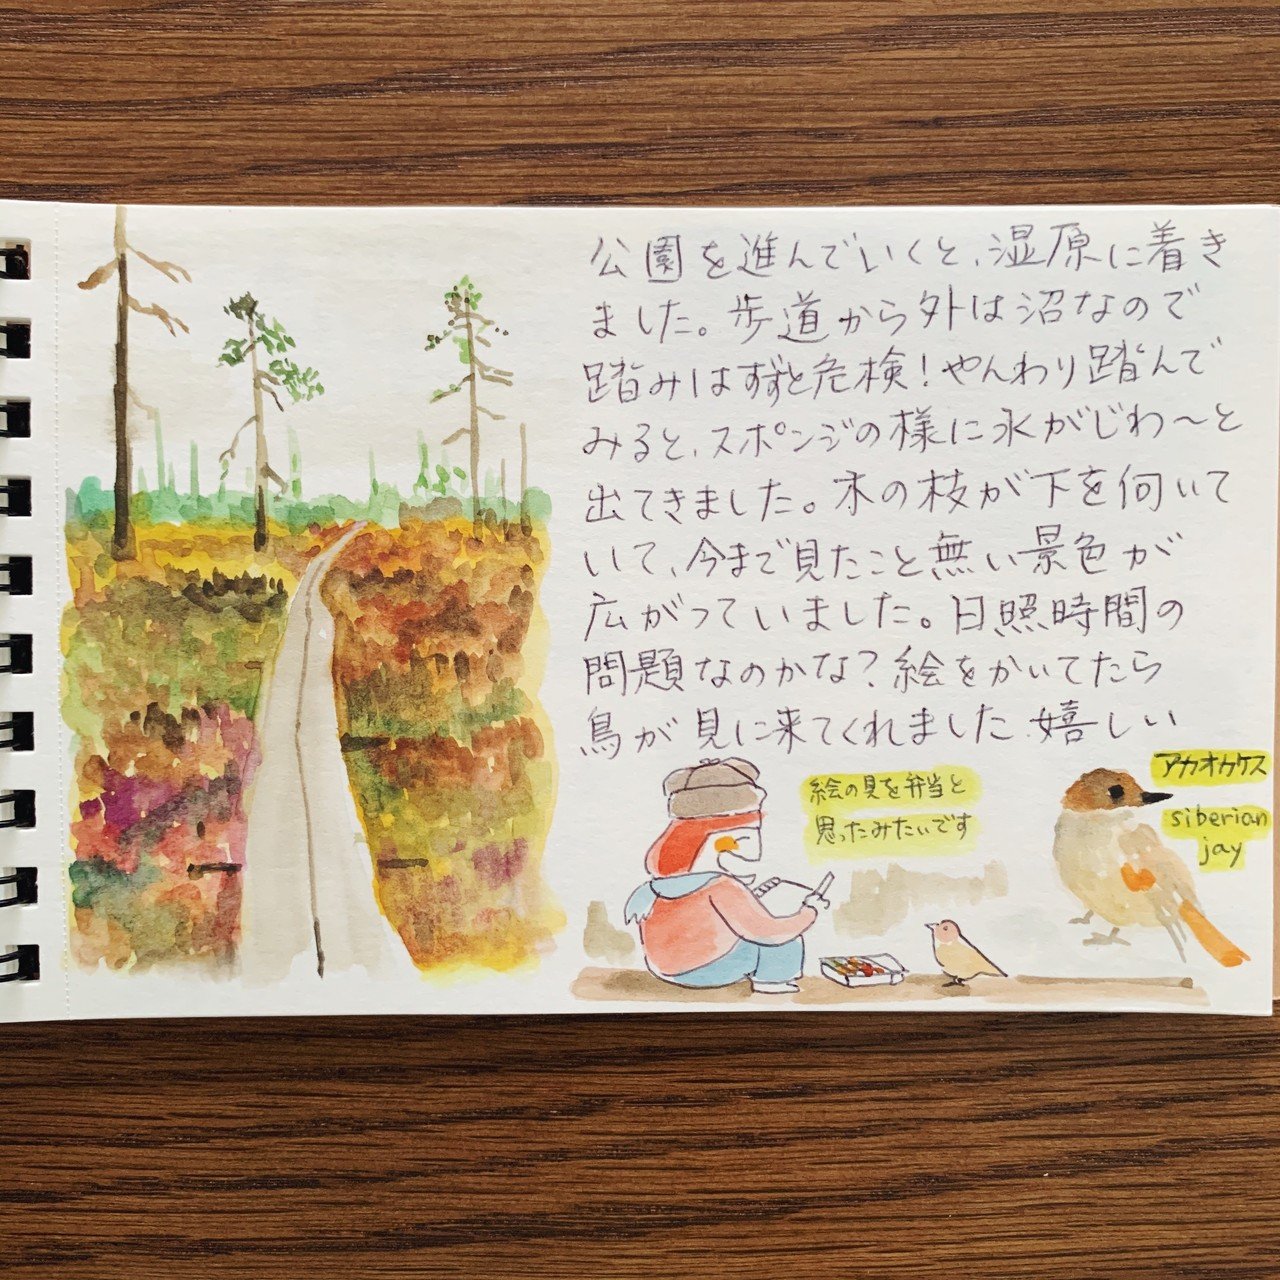 公園を進んでいくと、湿原に着き
ました。歩道から外は沼なので
踏みはずすと危検！やんわり踏んで
みると、スポンジの様に水がじわ〜と
出てきました。木の枝が下を向いて
いて、今まで見たこと無い景色が
広がっていました。日照時間の
問題なのかな？絵をかいてたら
鳥が見に来てくれました 嬉しい
絵の具を弁当と
思ったみたいです
アカオカケス
siberian
jay